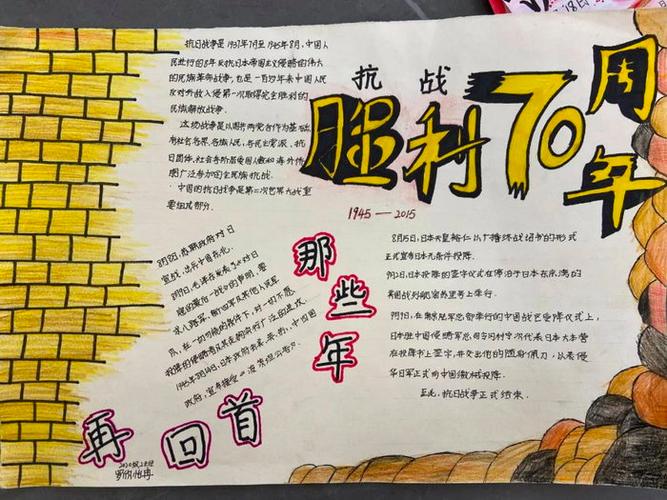 18日
抗日战争是1937年7月至1945年8月,中国人
民进行的8年反抗日本帝国主义侵略的伟大
的民族革命战争,也是一百多年来中国人民
反对外敌入侵第一次取得完全胜利的
民族解放战争。
这场战争是以国共两党合作为基础,
有社会各界、各族人民、各民主党派、抗
日团体、社会各阶层爱国人士和海外侨
胞广泛参加的全民族抗战。
中国的抗日战争是第二次世界大战重
要组成部分。
抗战
胜利70周年
1945—2015
8月8日,苏联政府对日
宣战,出兵中国东北。
8月9日,毛泽东发表了《对日
寇的最后一战》的声明,要
求八路军、新四军及其他人民军
队,在一切可能条件下,对一切不愿
投降的侵略者及其走狗实行广泛的进攻。
1945年8月14日,日本政府照会美、英、苏、中四国
政府,宣布接受《波茨坦公告》。
那些年
再回首
8月15日,日本天皇裕仁以广播终战诏书的形式
正式宣布日本无条件投降。
9月2日,日本投降的签字仪式在停泊于日本东京湾的
美国战列舰密苏里号上举行。
9月9日,在南京陆军总部举行的中国战区受降仪式上,
日本驻中国侵略军总司令冈村宁次代表日本大本营
在投降书上签字,并交出他的随身佩刀,以表侵
华日军正式向中国缴械投降。
至此,抗日战争正式结束。